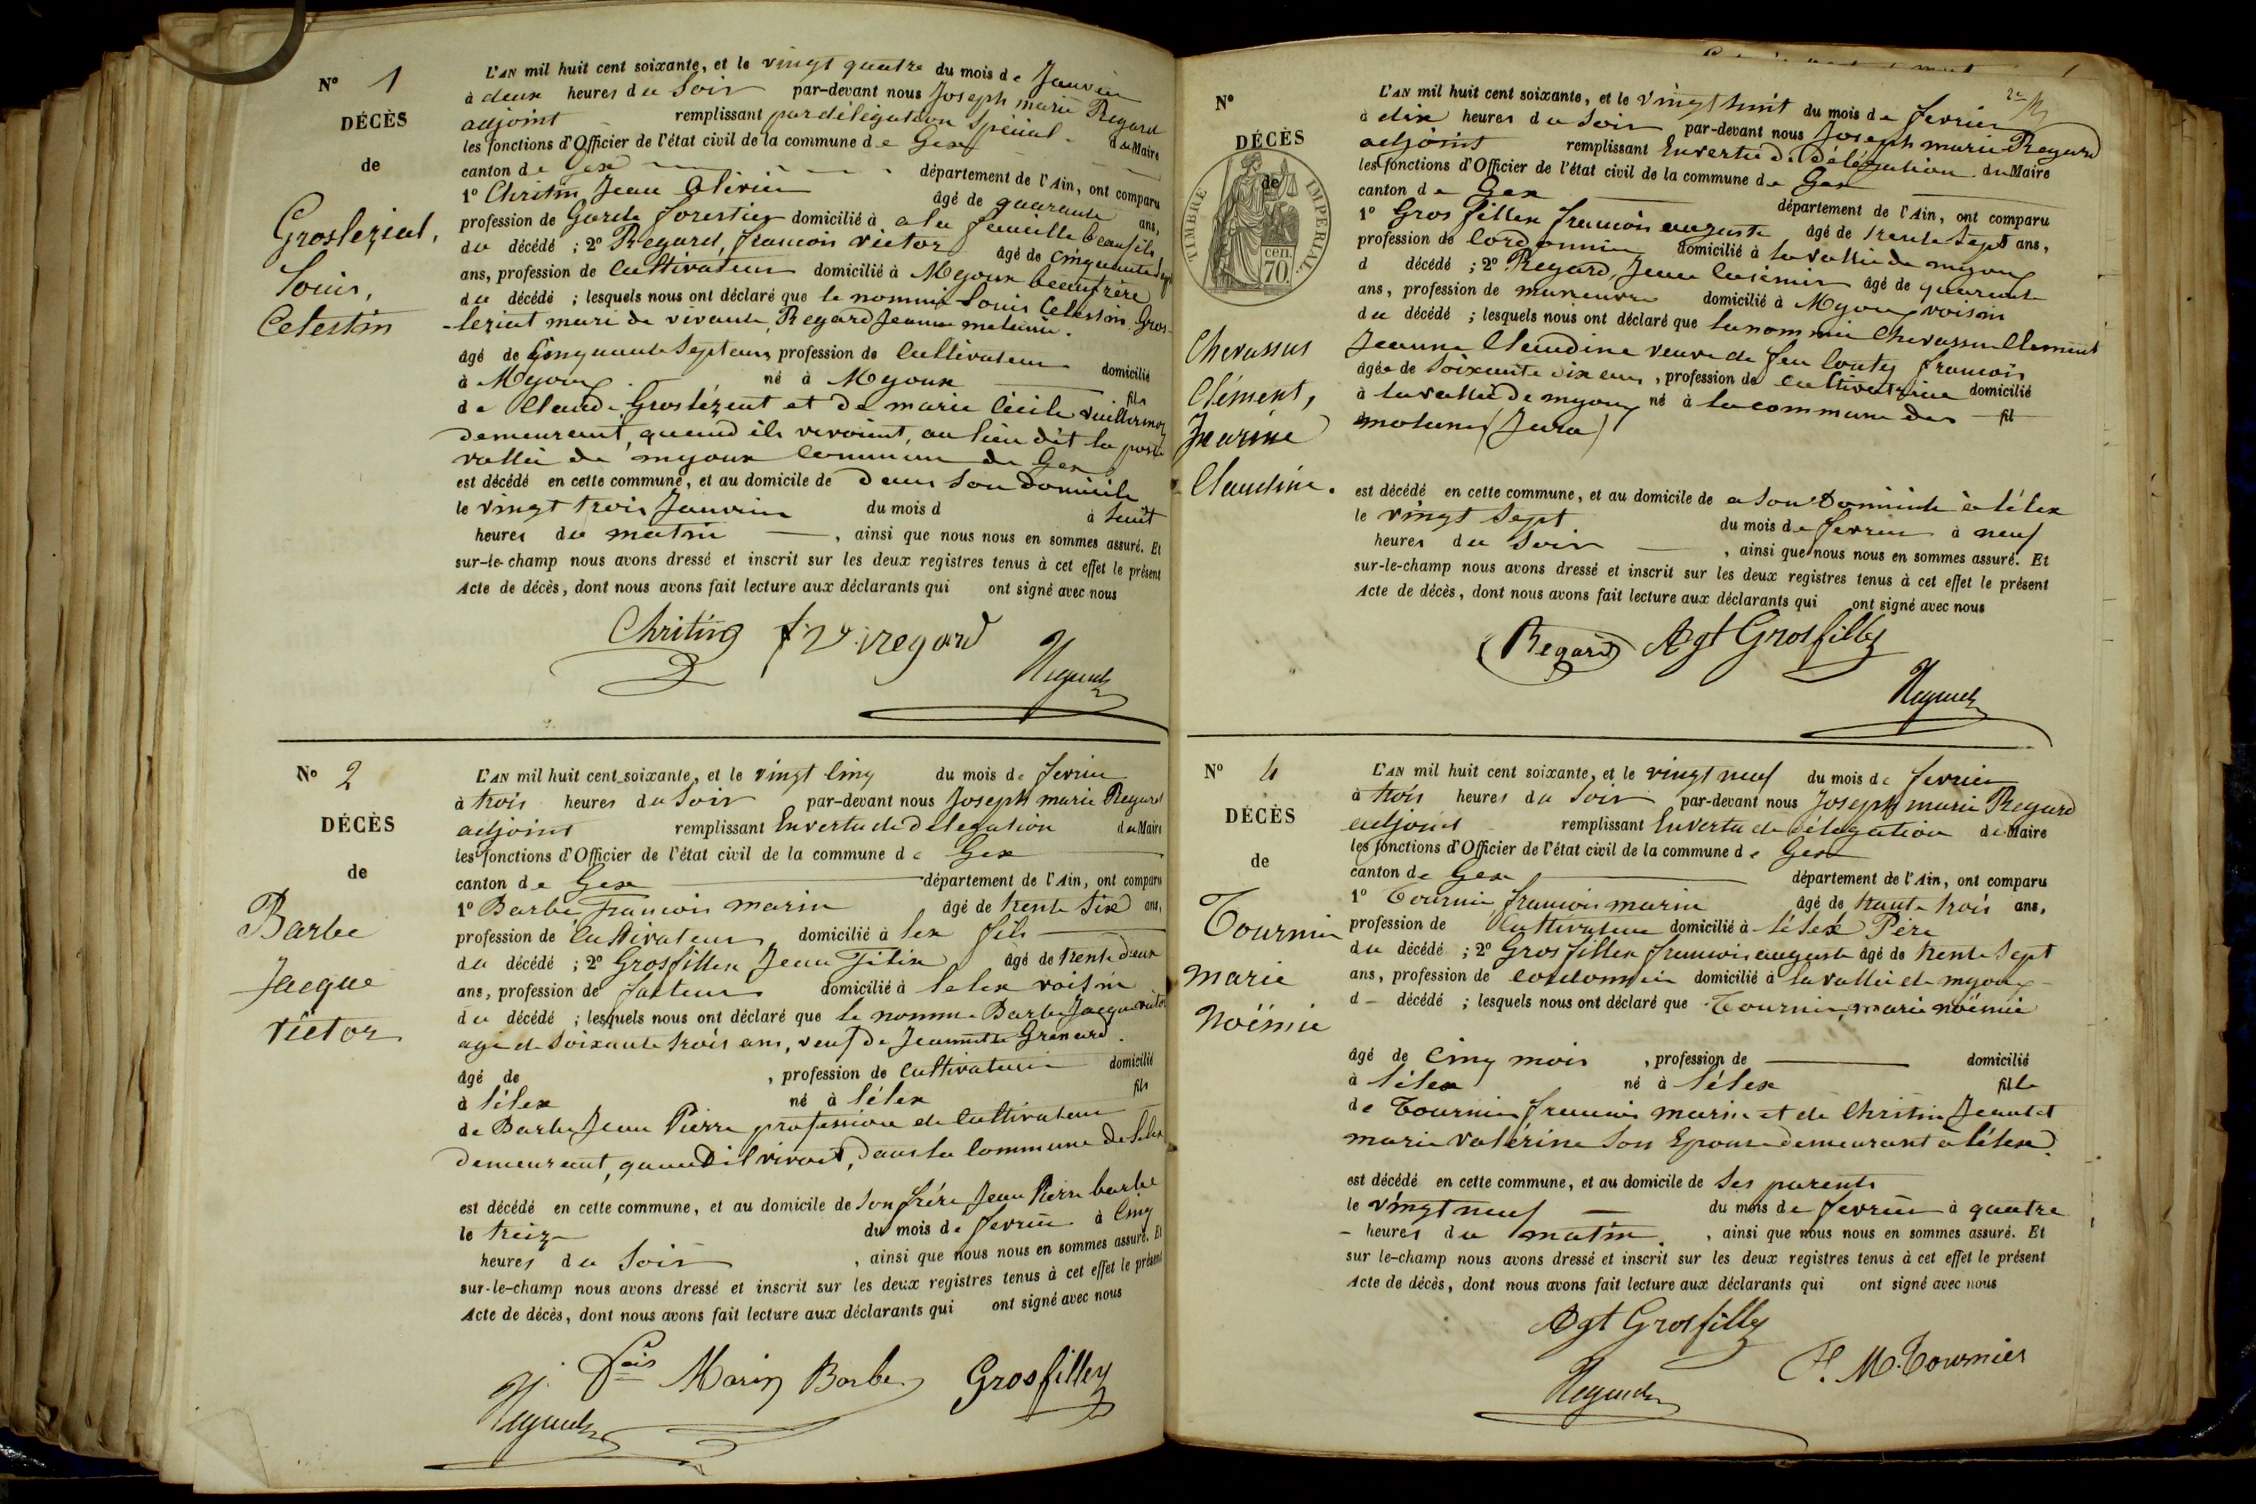 N° 1
DÉCÈS
de
Grosleziat,
Louis,
Celestin
L'AN mil huit cent soixante, et le vingt quatre du mois de Janvier
à deux heures du Soir par-devant nous Joseph marie Regard
adjoint remplissant par délégation Spécial du Maire
les fonctions d'Officier de l'état civil de la commune de Gex
canton de Gex département de l'Ain, ont comparu
1° Chritin Jean Olivier âgé de quarante ans,
profession de Garde forestier domicilié à a la faucille beaufils
du décédé ; 2° Regard, francois victor âgé de cinquante
ans, profession de Cultivateur domicilié à Mijoux beaufrère
du décédé ; lesquels nous ont déclaré que le nommé Louis Celestin Gros-
-leziat mari de vivante, Regard Jeanne
âgé de Cinquante Sept ans, profession de Cultivateur domicilié
à Myoux né à Myoux fils
de Claude Groslézeat et de marie Cécile vuillermoz
demeurant, quand ils vivoient, au lieu dit la
vallée de myoux Commune de Gex
est décédé en cette commune, et au domicile de Dans Son Domicile
le vingt trois Janvier du mois d à huit
heures du matin, ainsi que nous nous en sommes assuré. Et
sur-le-champ nous avons dressé et inscrit sur les deux registres tenus à cet effet le présent
Acte de décès, dont nous avons fait lecture aux déclarants qui ont signé avec nous
Chriting f. v. regard
Regard
N° 2
DÉCÈS
de
Barbe
Jacque
Victor
L'AN mil huit cent soixante, et le vingt Cinq du mois de fevrier
à trois heures du Soir par-devant nous Joseph marie Regard
adjoint remplissant En vertu de Délégation du Maire
les fonctions d'Officier de l'état civil de la commune de Gex
canton de Gex département de l'Ain, ont comparu
1° Barbe francois marin âgé de trente Six ans,
profession de Cultivateur domicilié à lex fils
du décédé ; 2° Grosfillex Jean Félix âgé de trente deux
ans, profession de facteur domicilié à lelex voisin
du décédé ; lesquels nous ont déclaré que le nommé Barbe Jacque victor
age de Soixante trois ans, veuf de Jeannette Grenard
âgé de , profession de Cultivateur domicilié
à lélex né à lélex fils
de Barbe Jean Pierre profession de Cultivateur
demeurant, quand il vivoit, Dans la Commune de Lelex
est décédé en cette commune, et au domicile de Son frére Jean Pierre barbe
le treize du mois de fevrier à Cinq
heures du Soir, ainsi que nous nous en sommes assuré. Et
sur-le-champ nous avons dressé et inscrit sur les deux registres tenus à cet effet le présent
Acte de décès, dont nous avons fait lecture aux déclarants qui ont signé avec nous
fois Marin Barbe Grosfilley
Regard
1
N°
DÉCÈS
de
TIMBRE IMPÉRIAL.
70 cen.
Chevassus
Clément,
Jearine
Claudine.
L'AN mil huit cent soixante, et le vingt huit du mois de fevrier
à dix heures du Soir par-devant nous Joseph marie Regard
adjoint remplissant En vertu de Délégation du Maire
les fonctions d'Officier de l'état civil de la commune de Gex
canton de Gex département de l'Ain, ont comparu
1° Gros fillex francois auguste âgé de trente Sept ans,
profession de Cordonnier domicilié à la vallée de myoux
d décédé ; 2° Regard, Jean Casimir âgé de quarante
ans, profession de domicilié à Myoux voisin
du décédé ; lesquels nous ont déclaré que la nommée Chevassu Clement
Jeanne Claudine veuve de feu francois
âgée de Soixante dix ans, profession de Cultivatrice domicilié
à la vallée de myoux né à la commune des fil
molunes (Jura)
est décédé en cette commune, et au domicile de a Son Domicile à lélex
le vingt Sept du mois de fevrier à neuf
heures du Soir, ainsi que nous nous en sommes assuré. Et
sur-le-champ nous avons dressé et inscrit sur les deux registres tenus à cet effet le présent
Acte de décès, dont nous avons fait lecture aux déclarants qui ont signé avec nous
Regard Agt Grosfilley
Regard
N° 4
DÉCÈS
de
Tournier
marie
Noëmie
L'AN mil huit cent soixante, et le vingt neuf du mois de fevrier
à trois heures du Soir par-devant nous Joseph marie Regard
adjoint remplissant En vertu de délégation du Maire
les fonctions d'Officier de l'état civil de la commune de Gex
canton de Gex département de l'Ain, ont comparu
1° Tournier francois marin âgé de trente trois ans,
profession de Cultivateur domicilié à lélex Père
du décédé ; 2° Gros fillex francois auguste âgé de trente Sept
ans, profession de Cordonnier domicilié à la vallée de myoux
d décédé ; lesquels nous ont déclaré que Tournier, marie noëmie
âgé de Cinq mois, profession de domicilié
à lélex né à lélex fille
de Tournier francois marin et de Chritin Jeantet
marie valérine Son Epouse demeurant à lélex.
est décédé en cette commune, et au domicile de Ses parents
le vingt neuf du mois de fevrier à quatre
heures du matin, ainsi que nous nous en sommes assuré. Et
sur le-champ nous avons dressé et inscrit sur les deux registres tenus à cet effet le présent
Acte de décès, dont nous avons fait lecture aux déclarants qui ont signé avec nous
Agt Grosfilley
F. M. Tournier
Regard